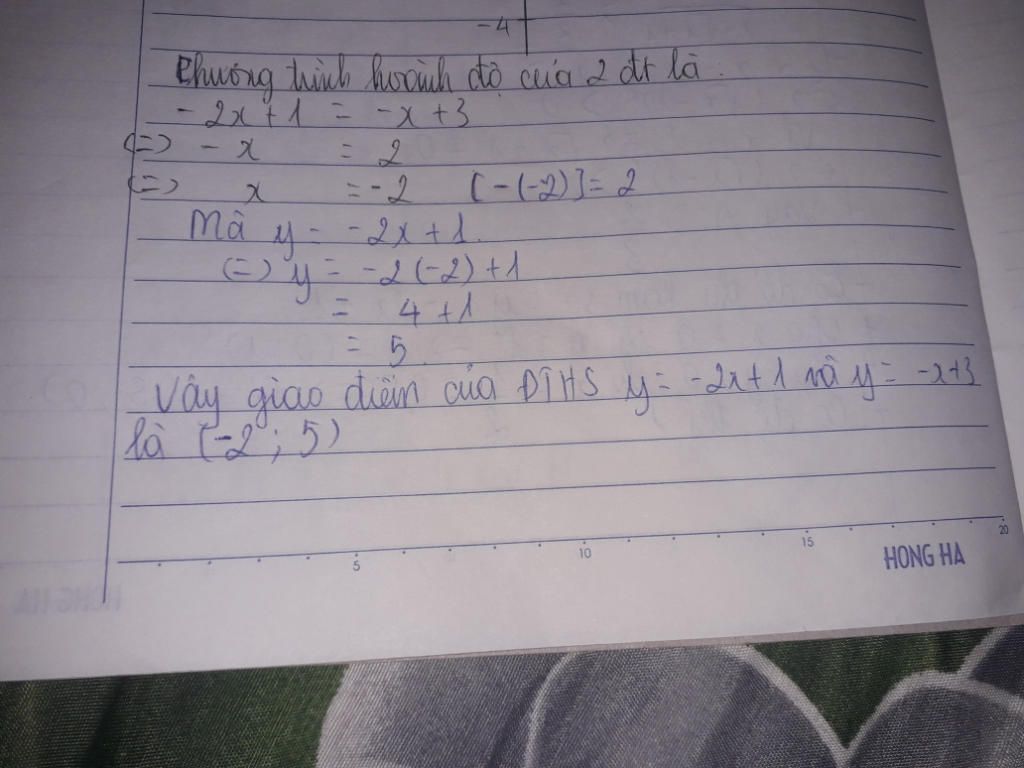 -4
Phương trình hoành độ của 2 đt là:
-2x+1 = -x+3
(=) -x = 2
(=) x = -2 [-(-2)] = 2
Mà y = -2x+1.
(=) y = -2(-2)+1
= 4+1
= 5.
Vậy giao điểm của ĐTHS y = -2x+1 và y = -x+3
là (-2; 5)
5 10 15 20
HONG HA